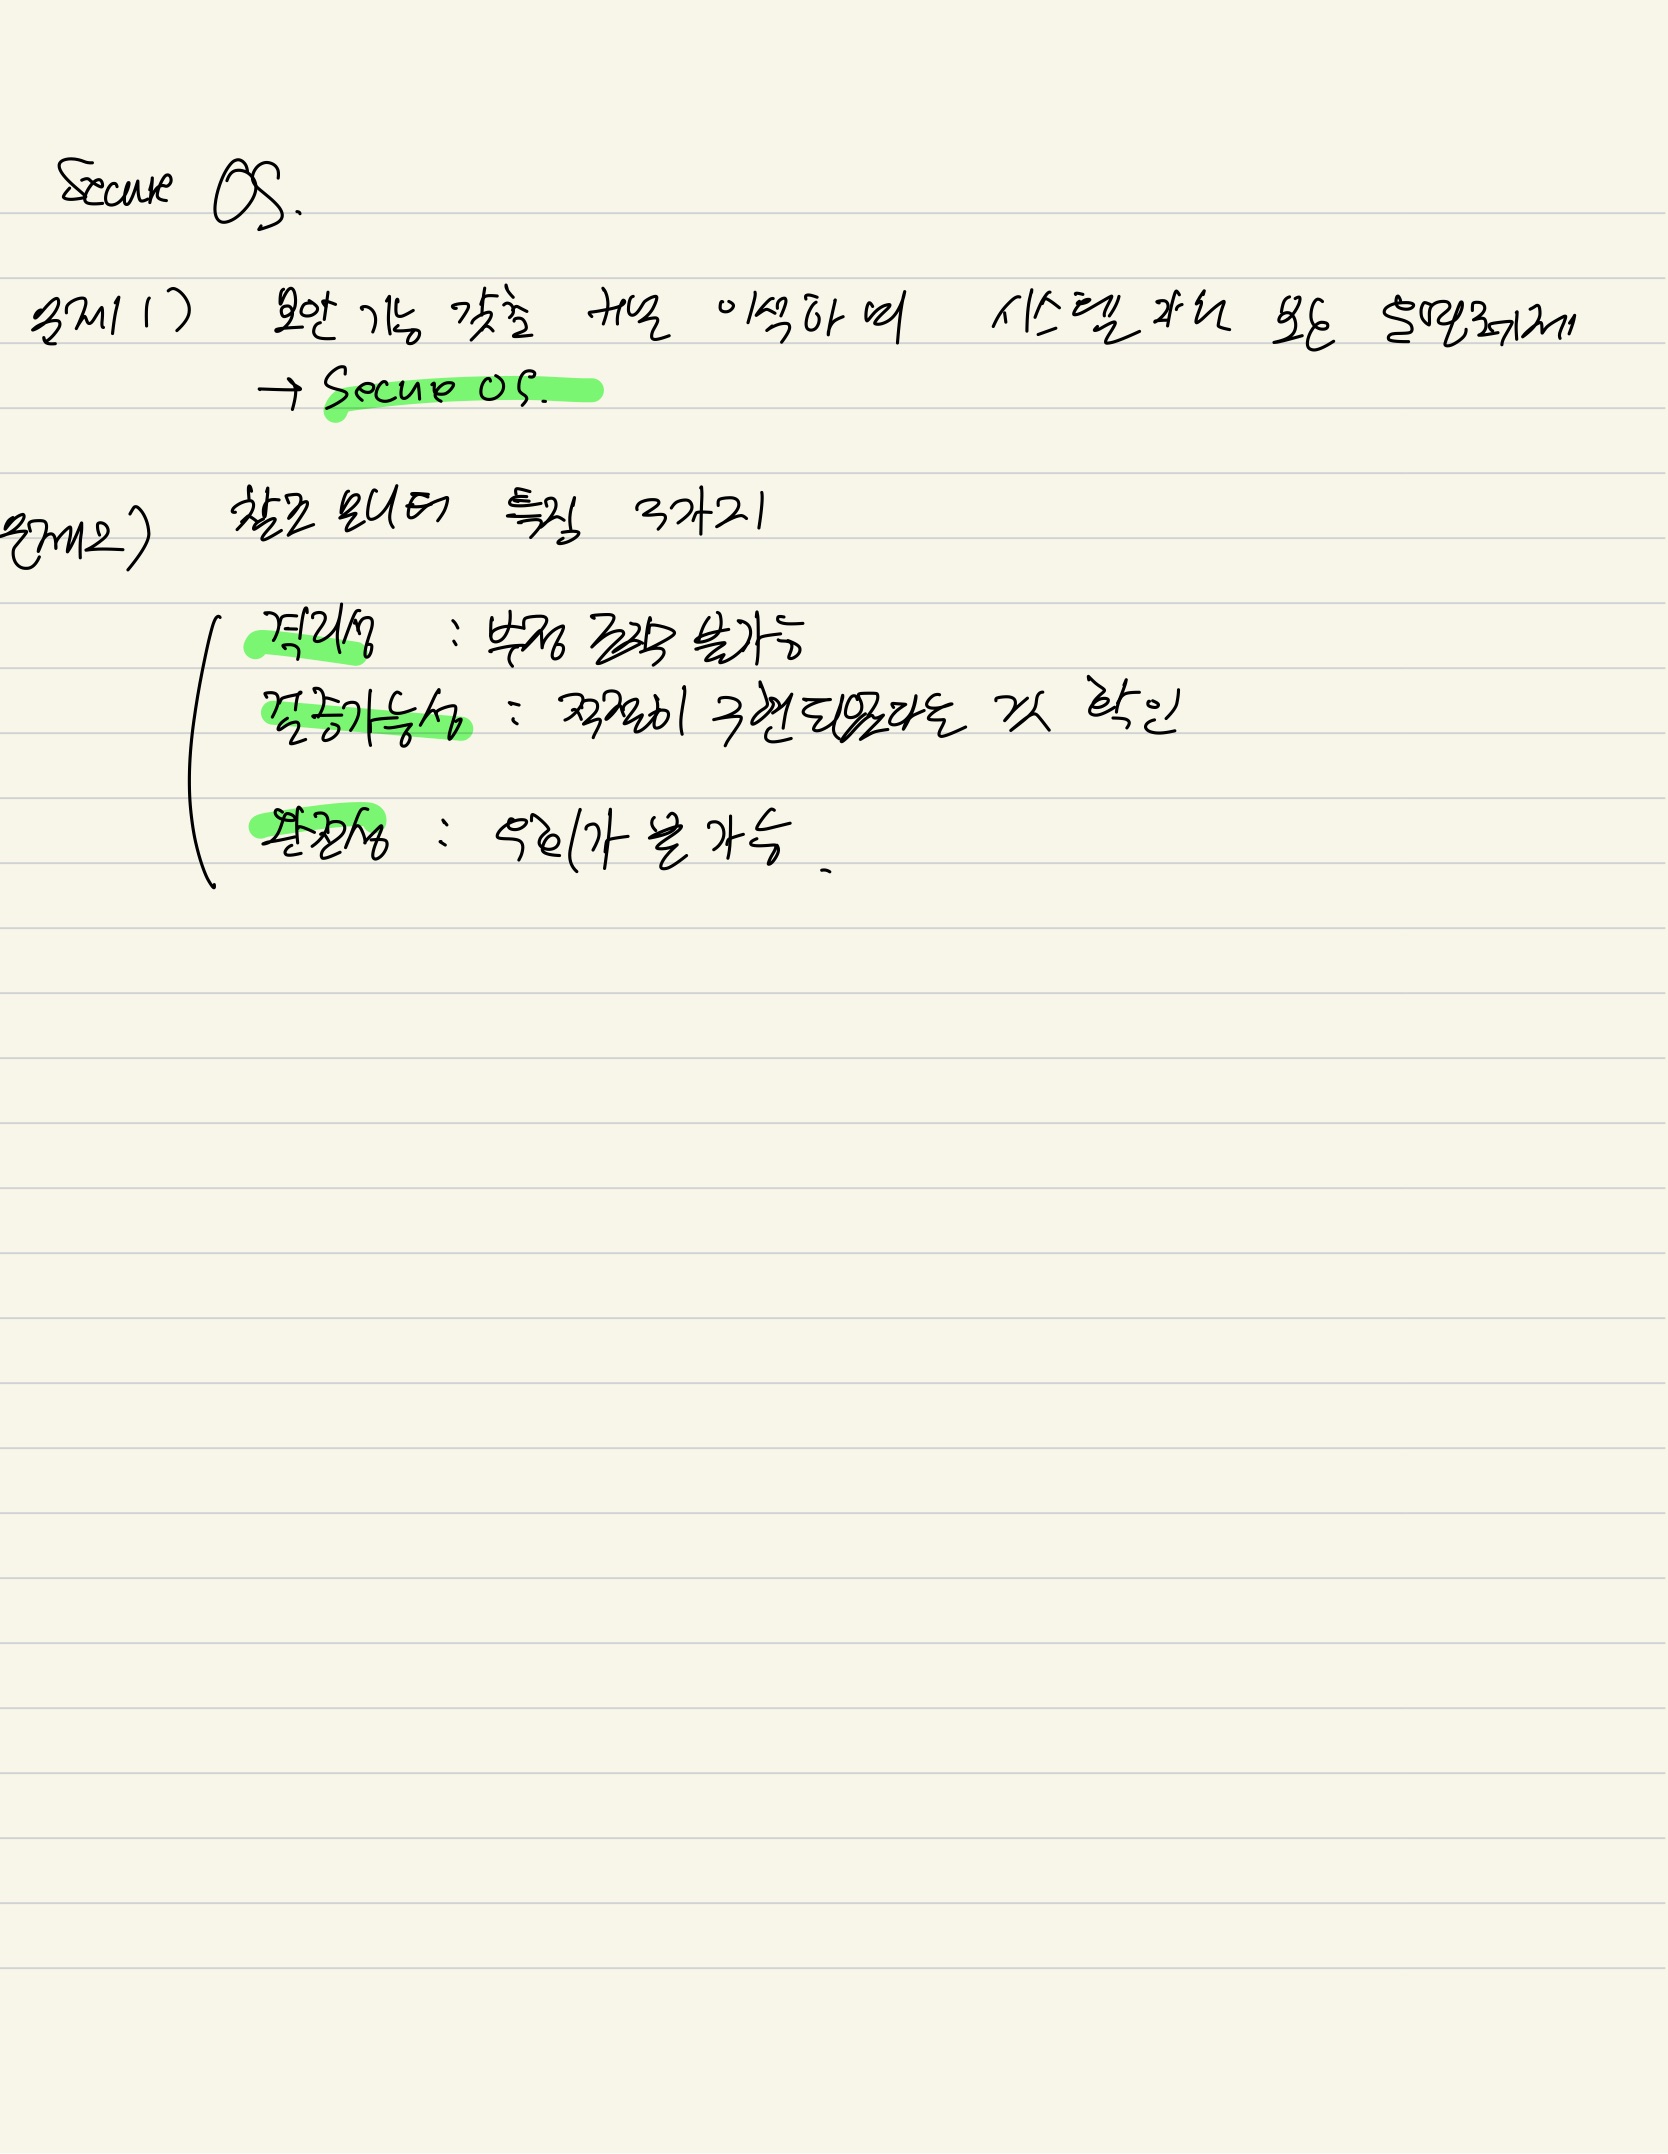 Secure OS.
문제 1) 보안 기능 갖춘 커널 이식하여 시스템 자원 보호 운영체제
→ Secure OS.
문제2) 참조 모니터 특징 3가지
격리성 : 부정 조작 불가능
검증가능성 : 적절히 구현되었다는 것 확인
완전성 : 우회가 불가능.